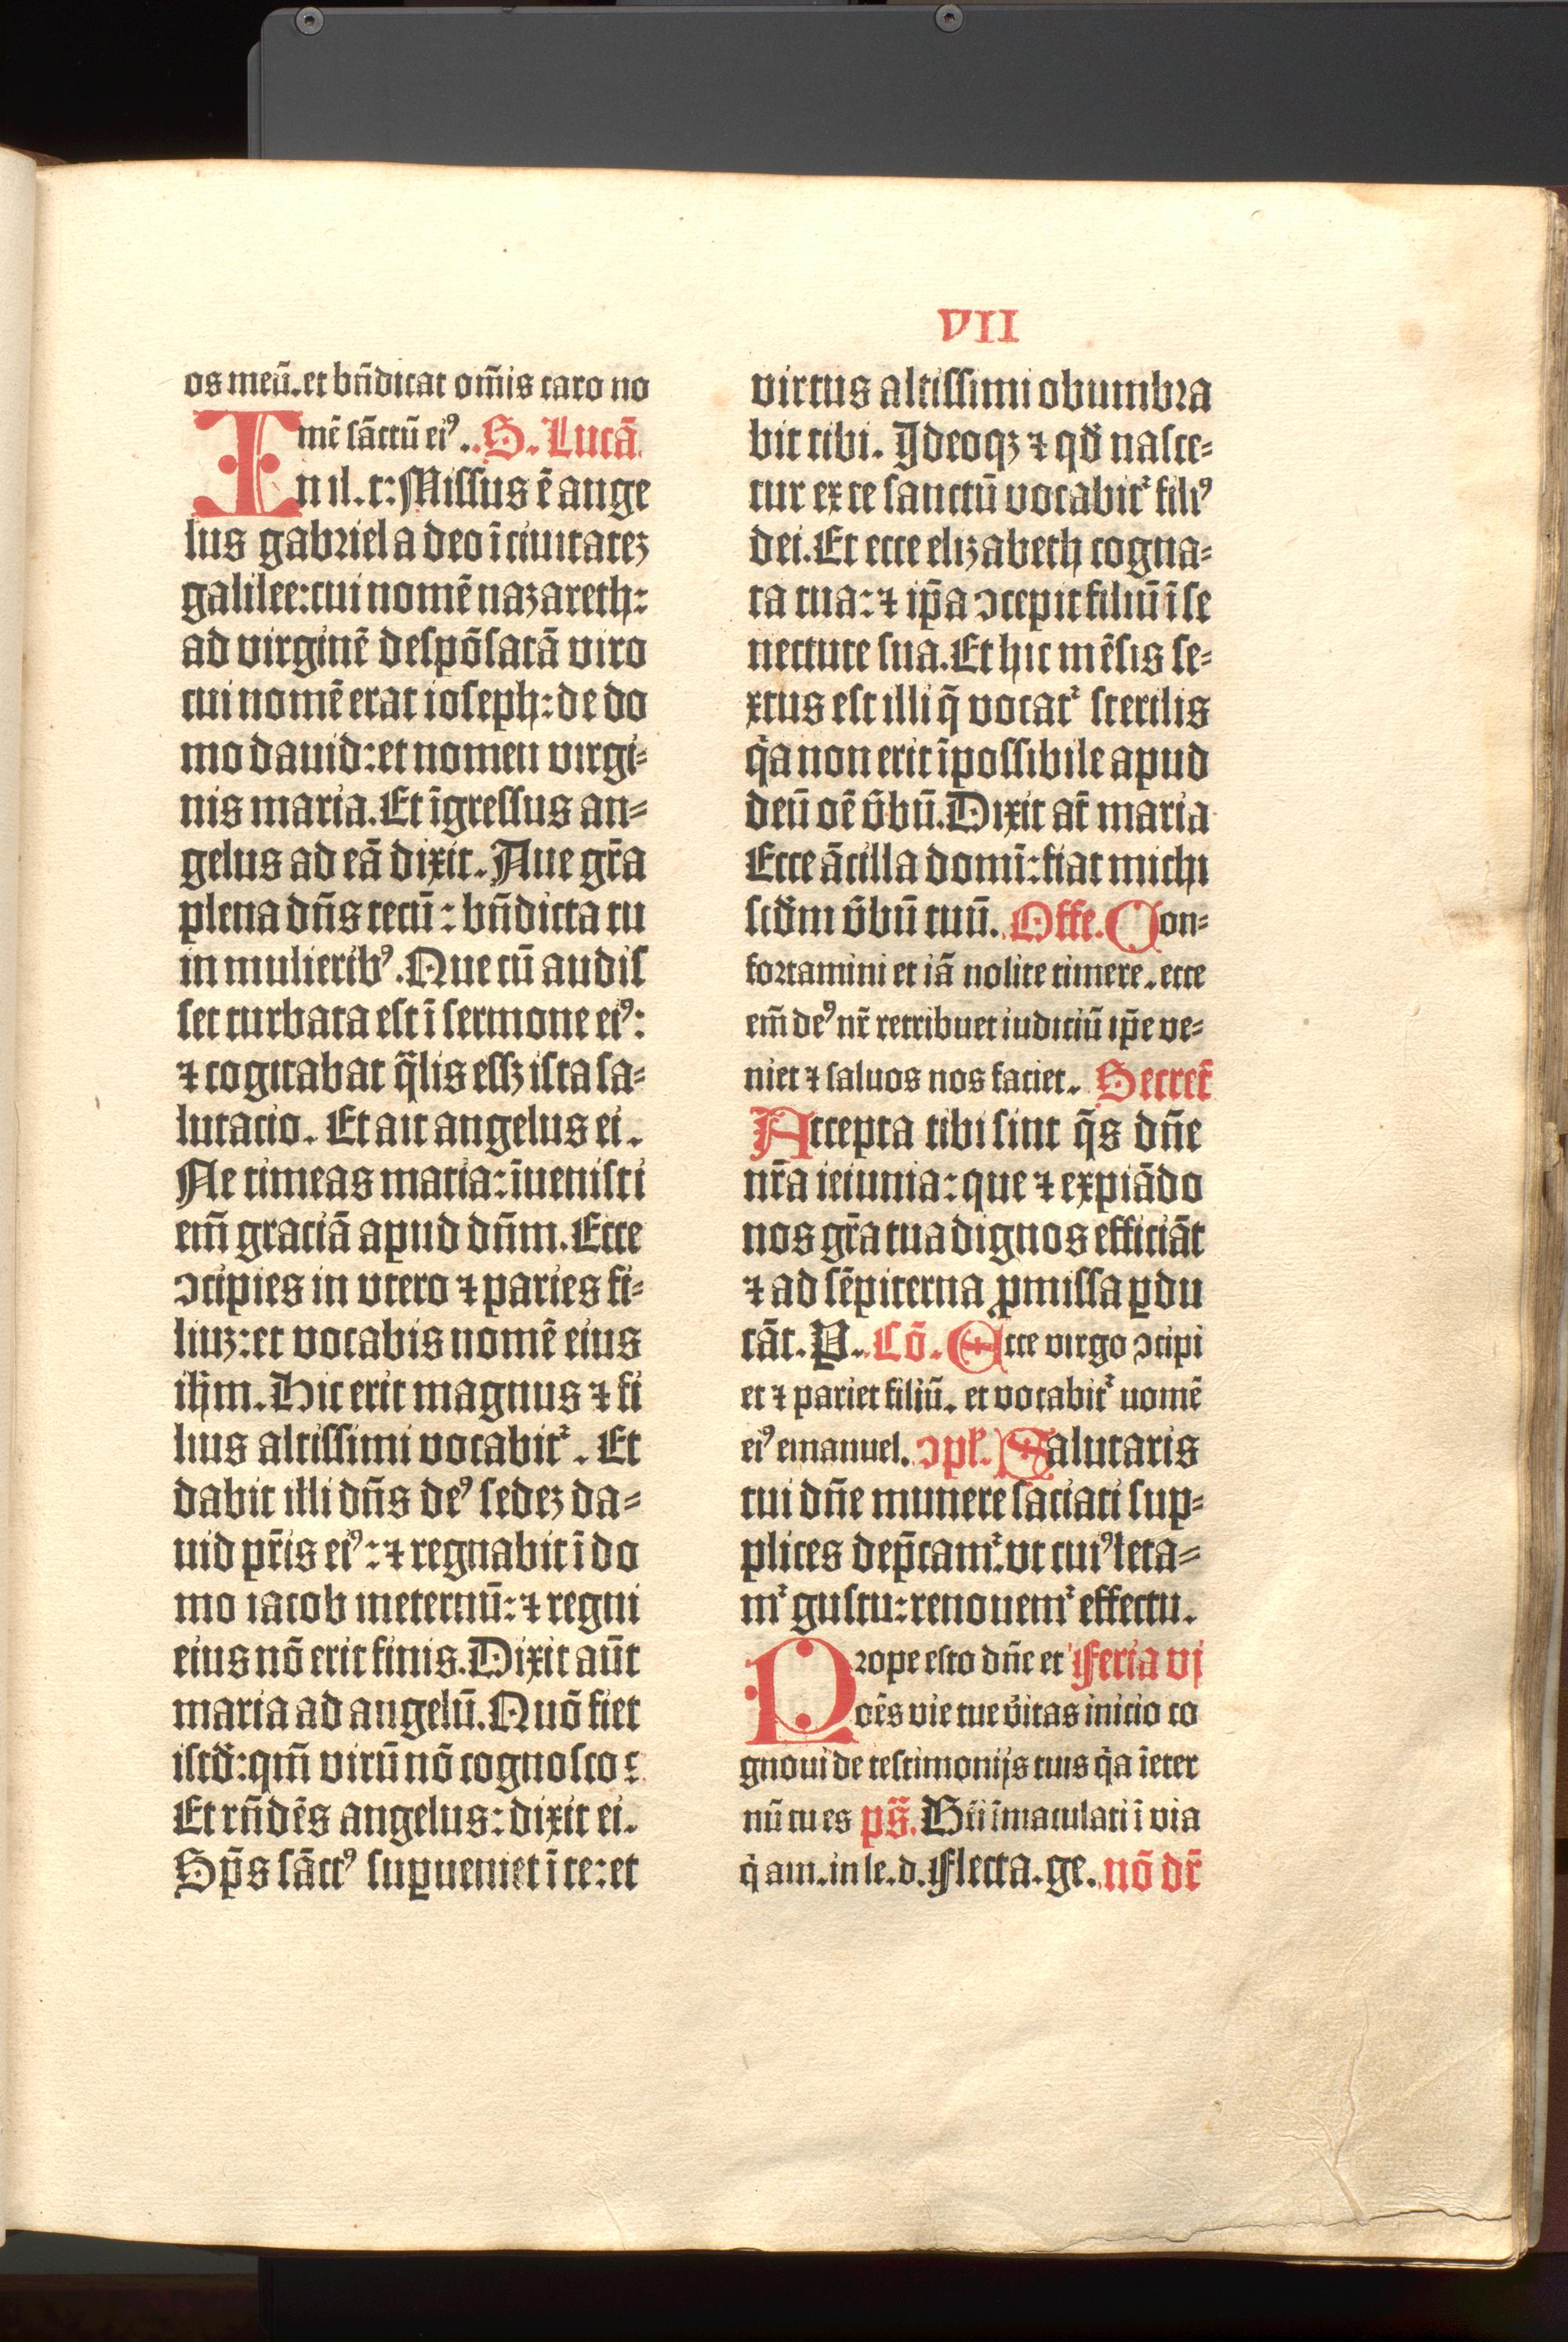 VII
os meū. et bn̄dicat om̄is caro no
mē sāctū eiꝰ. S. Lucā
In il. t: Missus ē ange
lus gabriel a deo ī ciuitateꝫ
galilee: cui nomē nazareth:
ad virginē despōsatā viro
cui nomē erat ioseph: de do
mo dauid: et nomen virgi⸗
nis maria. Et īgressus an⸗
gelus ad eā dixit. Aue gr̄a
plena dn̄s tecū: bn̄dicta tu
in mulieribꝰ. Que cū audis
set turbata est ī sermone eiꝰ:
⁊ cogitabat q̄lis essꝫ ista sa⸗
lutacio. Et ait angelus ei.
Ne timeas maria: īuenisti
em̄ graciā apud dn̄m. Ecce
ↄcipies in vtero ⁊ paries fi⸗
liuꝫ: et vocabis nomē eius
ih̄m. Hic erit magnus ⁊ fi
lius altissimi vocabit᷑. Et
dabit illi dn̄s deꝰ sedeꝫ da⸗
uid pr̄is eiꝰ: ⁊ regnabit ī do
mo iacob ineternū: ⁊ regni
eius nō erit finis. Dixit aūt
maria ad angelū. Quō fiet
istd̄: qm̄ virū nō cognosco?
Et rn̄dēs angelus: dixit ei.
Sp̄s sāctꝰ suꝑueniet ī te: et
virtus altissimi obumbra
bit tibi. Ideoqꝫ ⁊ qd̄ nasce⸗
tur ex te sanctū vocabit᷑ filiꝰ
dei. Et ecce elizabeth cogna⸗
ta tua: ⁊ ip̄a ↄcepit filiū ī se
nectute sua. Et hic mēsis se⸗
xtus est illi q̄ vocat᷑ sterilis
q̄a non erit īpossibile apud
deū oē v̄bū. Dixit at̄ maria
Ecce ācilla domī: fiat michi
scd̄m v̄bū tuū. Offe. Con⸗
fortamini et iā nolite timere. ecce
em̄ deꝰ nr̄ retribuet iudiciū ip̄e ve⸗
niet ⁊ saluos nos faciet. Secret̄
Accepta tibi sint q̄s dn̄e
nr̄a ieiunia: que ⁊ expiādo
nos gr̄a tua dignos efficiāt
⁊ ad sēpiterna ꝓmissa ꝑdu
cāt. P. Cō. Ecce virgo ↄcipi
et ⁊ pariet filiū. et vocabit᷑ nomē
eiꝰ emanuel. ↄpl̄. Salutaris
tui dn̄e munere saciati sup⸗
plices dep̄cam᷑. vt cuiꝰ leta⸗
m᷑ gustu: renouem᷑ effectu.
Prope esto dn̄e et Feria vj
oēs vie tue v̄itas inicio co
gnoui de testimonijs tuis q̄a īeter
nū tu es ps̄. Bt̄i īmaculati ī via
q̇ am. in le. d. Flecta. ge. nō dr̄